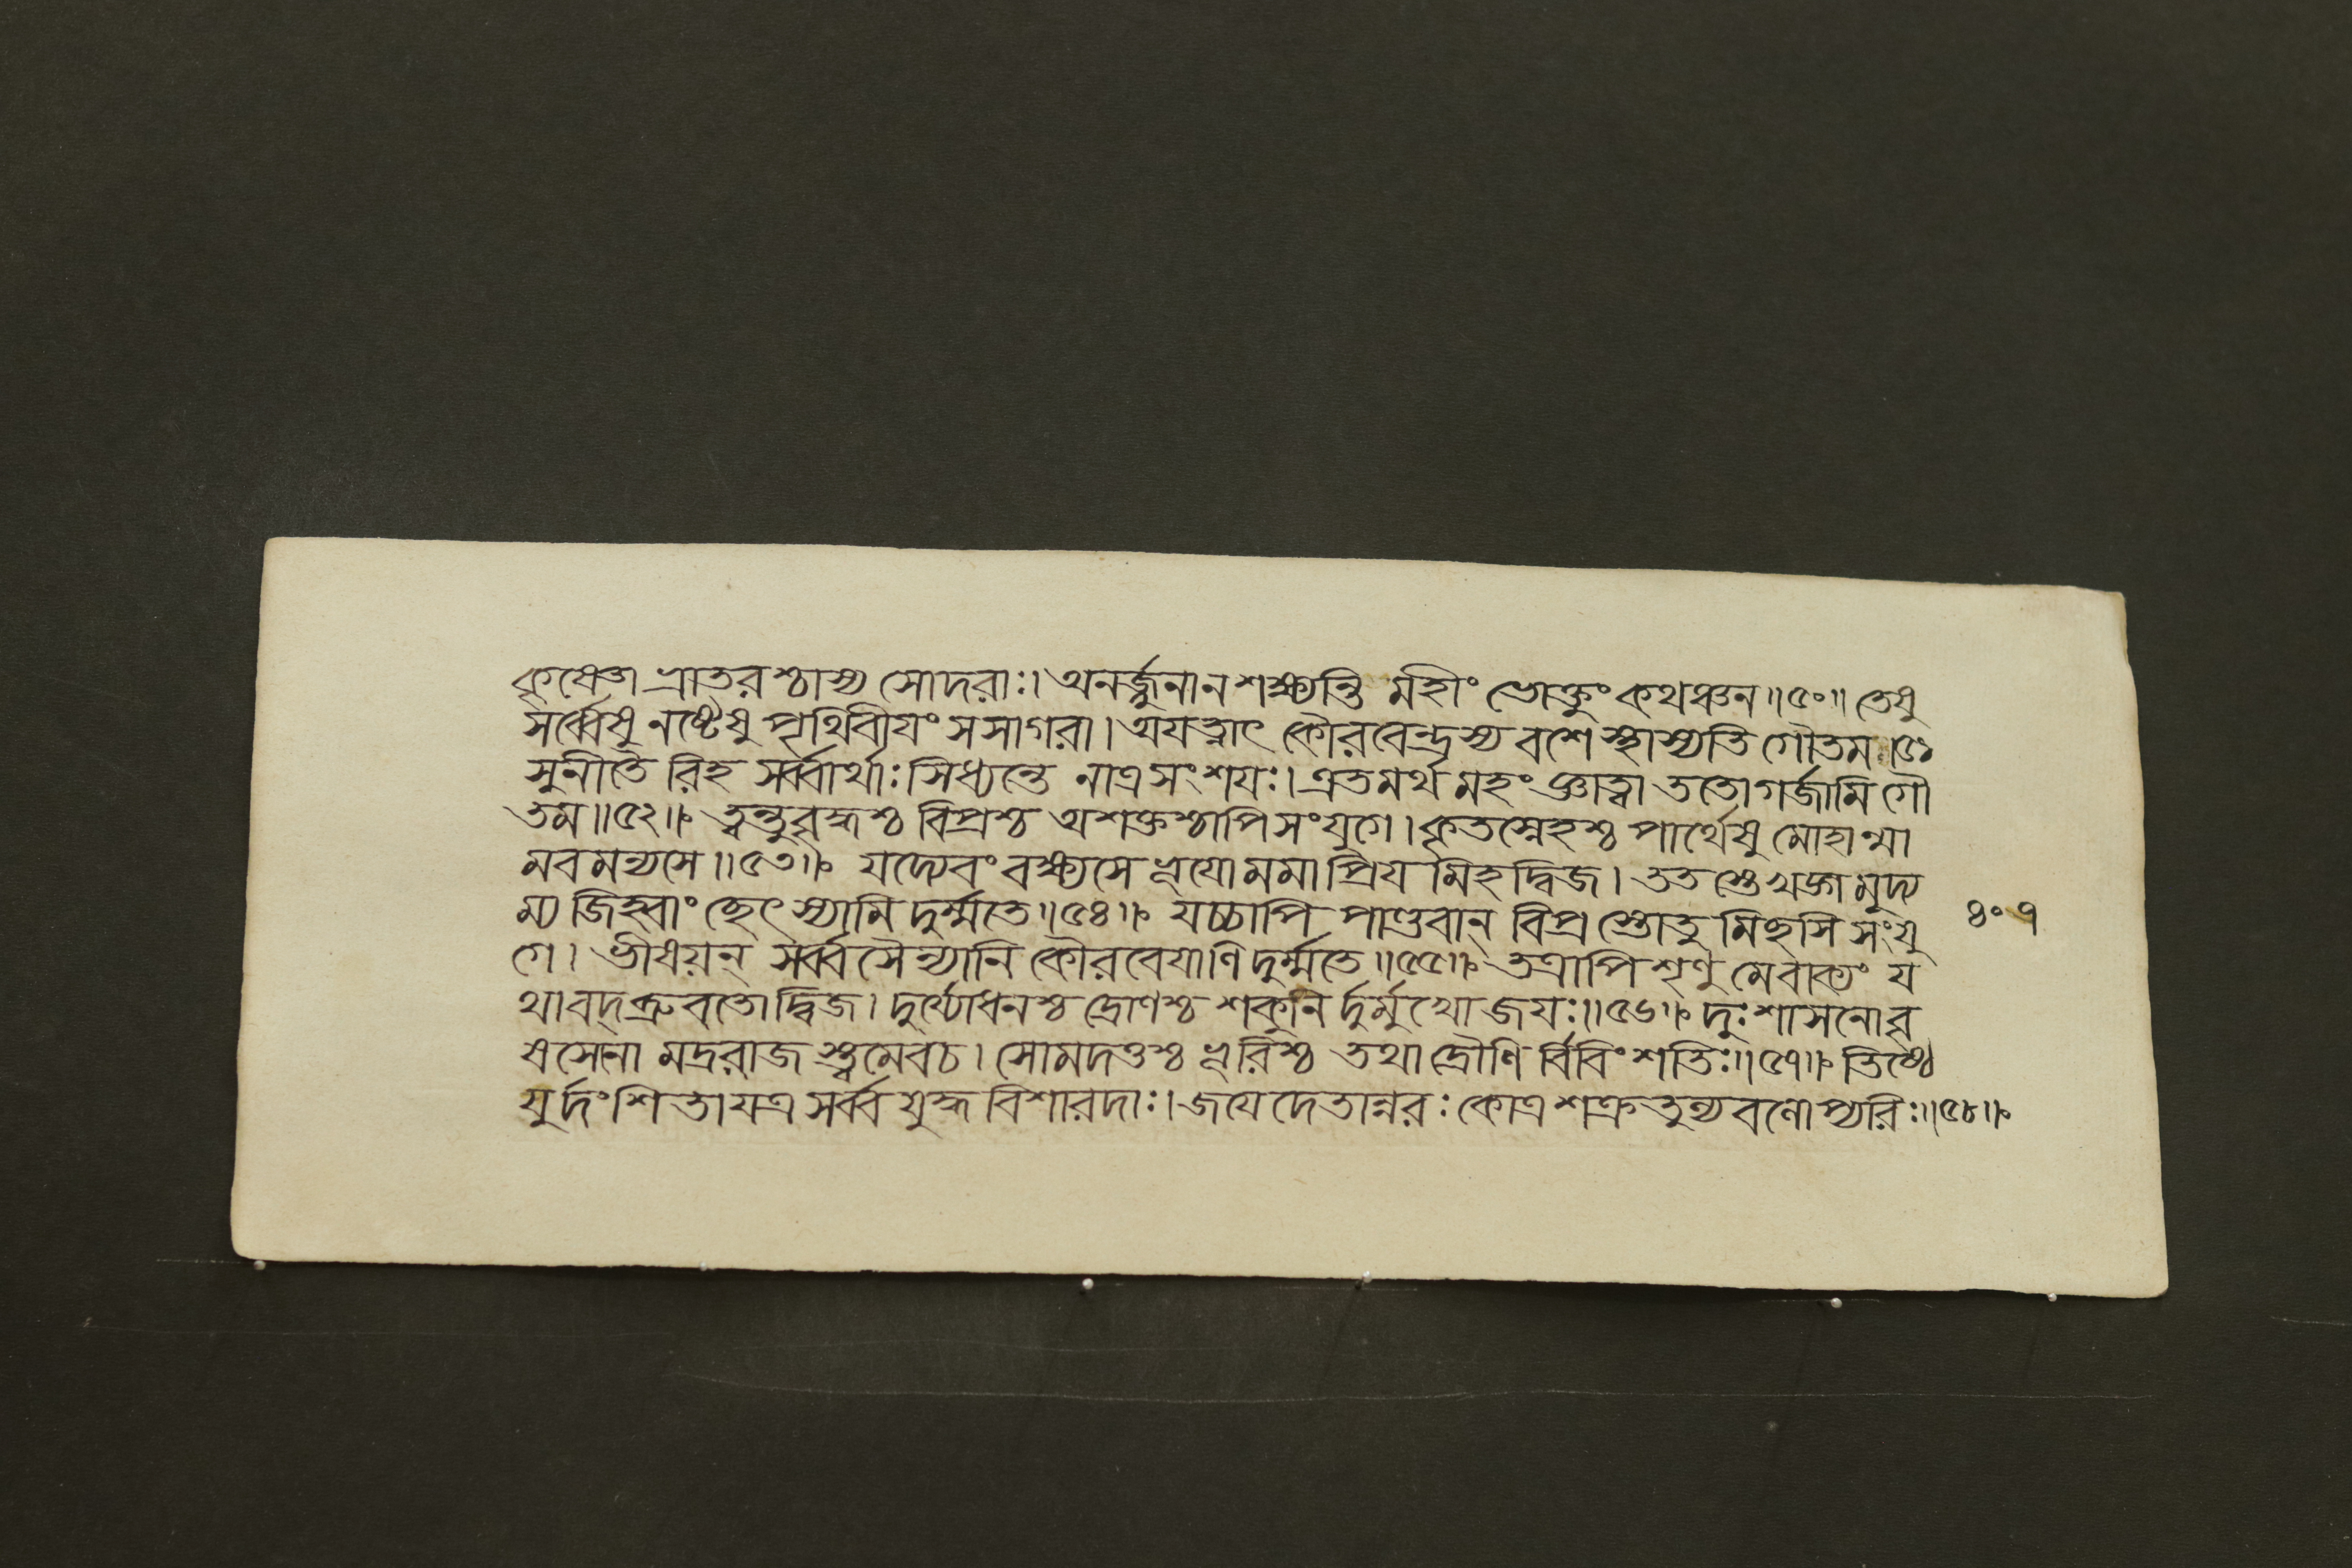 কৃষ্ণো ভ্রাতরশ্চাস্য সোদরাঃ। অনর্জ্জুনান শক্ষ্যন্তি র্মহীং ভোক্তুং কথঞ্চন॥৫০॥ তেষু
সর্ব্বেষু নষ্টেষু পৃথিবীযং সসাগরা। অযত্নাৎ কৌরবেন্দ্রস্য বশে স্থাস্যতি গৌতম॥৫১
সুনীতৈ রিহ সর্ব্বার্থাঃ সিধ্যন্তে নাত্র সংশযঃ। এতমর্থ মহং জ্ঞাত্বা ততো গর্জামি গৌ
তম॥৫২॥ ত্বন্তু বৃদ্ধশ্চ বিপ্রশ্চ অশক্তশ্চাপি সংযুগে। কৃতস্নেহশ্চ পার্থেষু মোহান্মা
মবমন্যসে॥৫৩॥ যদ্যেবং বক্ষ্যসে ভূযো মমাপ্রিয মিহ দ্বিজ। তত স্তে খড়্গ মুদ্য
ম্য জিহ্বাং ছেৎস্যামি দুর্ম্মতে॥৫৪॥ যচ্চাপি পাণ্ডবান্ বিপ্র স্তোতু মিছসি সংযু
গে। ভীষয়ন্ সর্ব্ব সৈন্যানি কৌরবেযাণি দুর্ম্মতে॥৫৫॥ তত্রাপি শৃণু মে বাক্যং য
থাবদ্ ব্রুবতো দ্বিজ। দুর্য্যোধনশ্চ দ্রোণশ্চ শকুনি র্দুর্মুখো জযঃ॥৫৬॥ দুঃশাসনো বৃ
ষসেনো মদ্ররাজ স্ত্বমেবচ। সোমদত্তশ্চ ভূরিশ্চ তথা দ্রৌণি র্বিবিংশতিঃ॥৫৭॥ তিষ্ঠে
যুর্দংশিতা যত্র সর্ব্ব যুদ্ধ বিশারদাঃ। জযেদেতান্নরঃ কোত্র শত্রুতুল্য বলোপ্যরিঃ॥৫৮॥
৪০৭